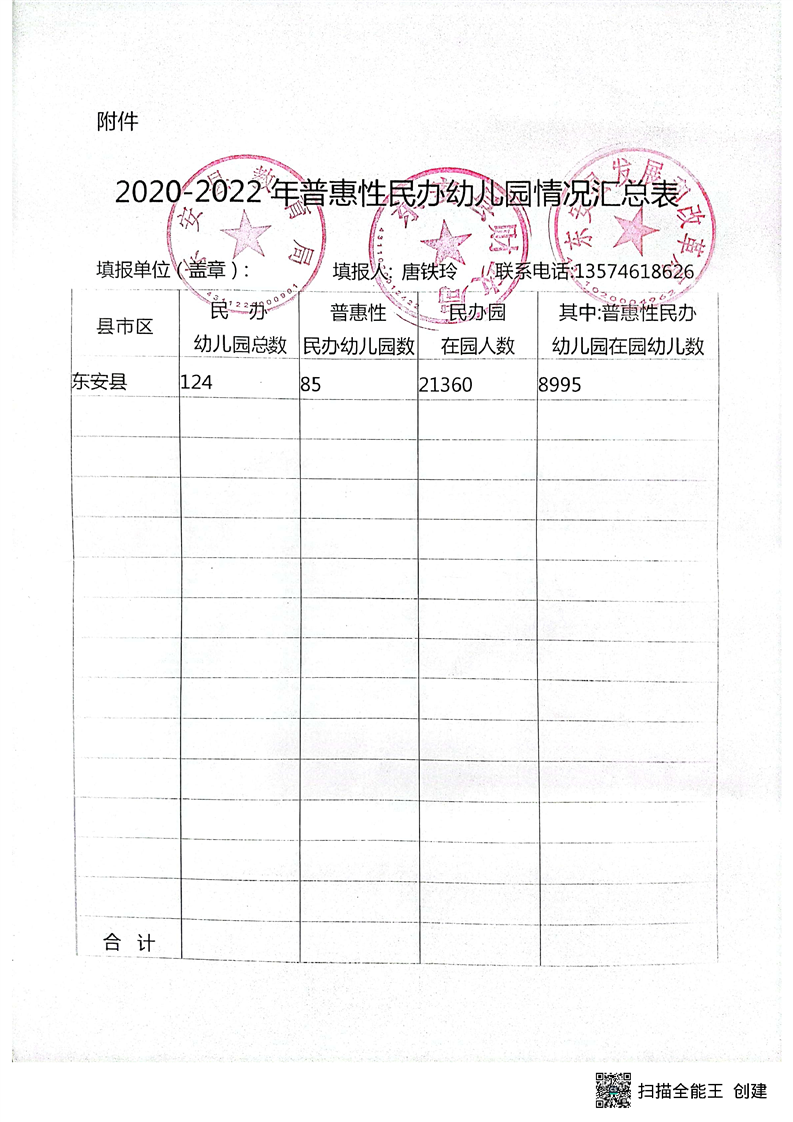 附件
2020-2022年普惠性民办幼儿园情况汇总表
填报单位（盖章）： 填报人：唐铁玲 联系电话:13574618626
县市区 民 办 幼儿园总数 普惠性 民办幼儿园数 民办园 在园人数 其中:普惠性民办 幼儿园在园幼儿数
东安县 124 85 21360 8995
合 计
东安县教育局
东安县财政局
东安县发展和改革局
扫描全能王 创建